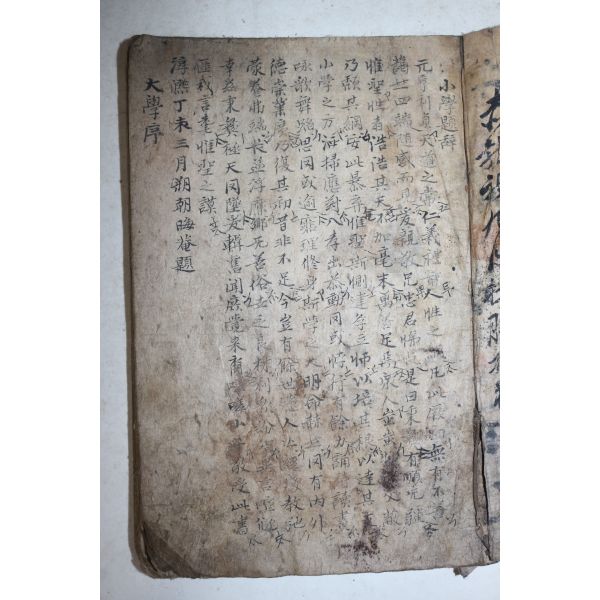 小學題辭
元亨利貞天道之常仁義禮智人性之綱凡此厥初無有不善
藹然四端隨感而見愛親敬兄忠君悌長是曰秉彝有順無彊
惟聖性者浩浩其天不加毫末萬善足焉衆人蚩蚩物欲交蔽
乃頹其綱安此暴棄惟聖斯惻建學立師以培其根以達其支
小學之方洒掃應對入孝出恭動罔或悖行有餘力誦詩讀書
咏歌舞蹈思罔或逾窮理修身斯學之大明命赫然罔有內外
德崇業廣乃復其初昔非不足今豈有餘世遠人亡經殘教弛
蒙養弗端長益浮靡鄕无善俗世乏良材利欲紛拏異言喧豗
幸茲秉彝極天罔墜爰輯舊聞庶覺來裔嗟嗟小子敬受此書
匪我言耄惟聖之謨
淳熙丁未三月朔朝晦菴題
大學序